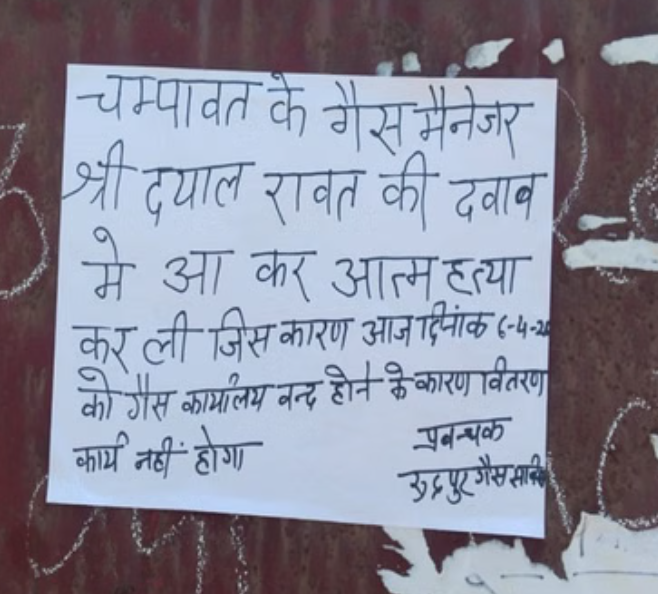 चम्पावत के गैस मैनेजर
श्री दयाल रावत की दवाब
मे आ कर आत्महत्या
कर ली जिस कारण आज दिनांक 6-4-2
को गैस कार्यालय वन्द होने के कारण वितरण
कार्य नहीं होगा
प्रबन्धक
रुद्रपुर गैस